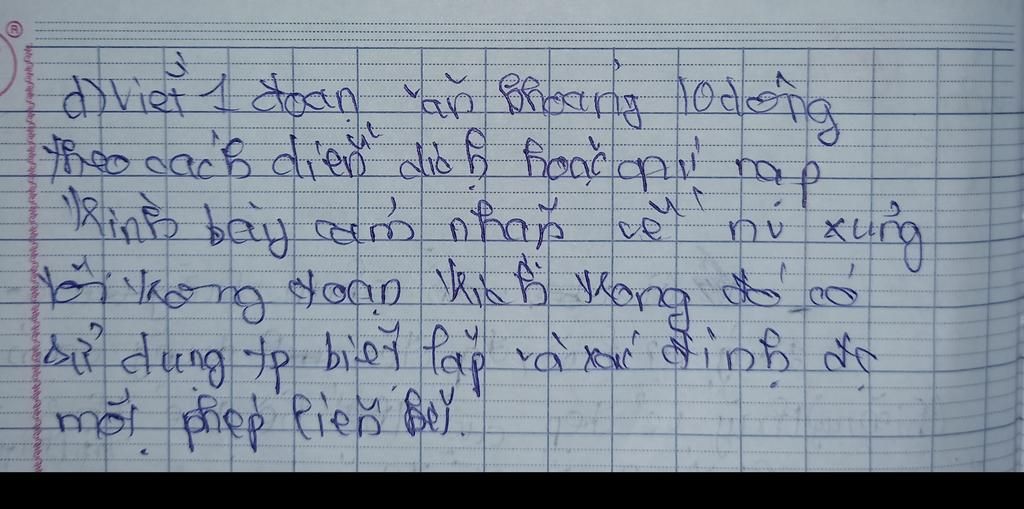 d) Viết 1 đoạn văn khoảng 10 dòng
theo cách diễn dịch hoặc quy nạp
trình bày cảm nhận về nv xưng
tôi trong đoạn trích trong đó có
sử dụng tp biệt lập và xác định đc
một phép liên kết.